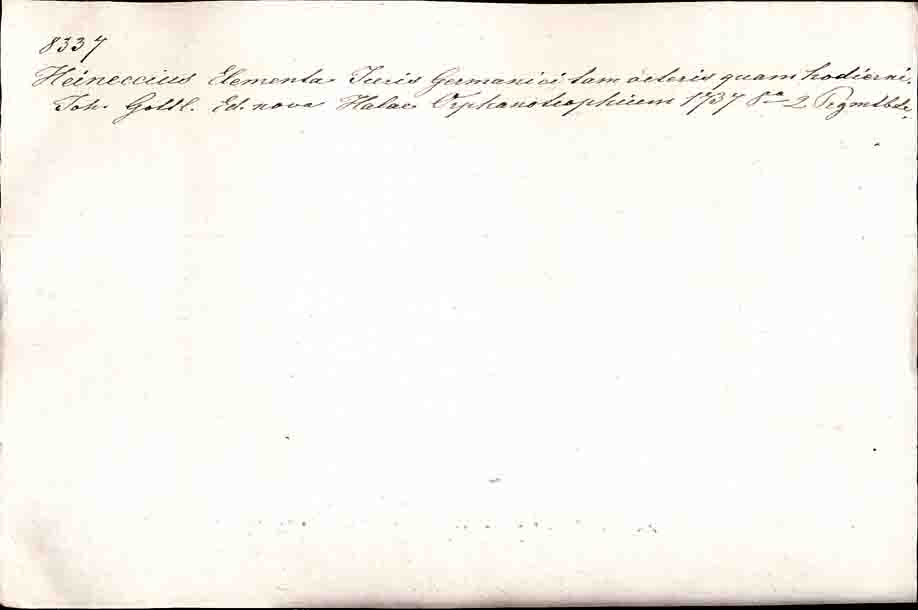 8337
Heineccius Elementa Juris Germanici tam veteris quam hodierni,
Joh. Gottl. Ed. nova Halae Orphanotrophieum 1737 8° 2 Prgmtbde.